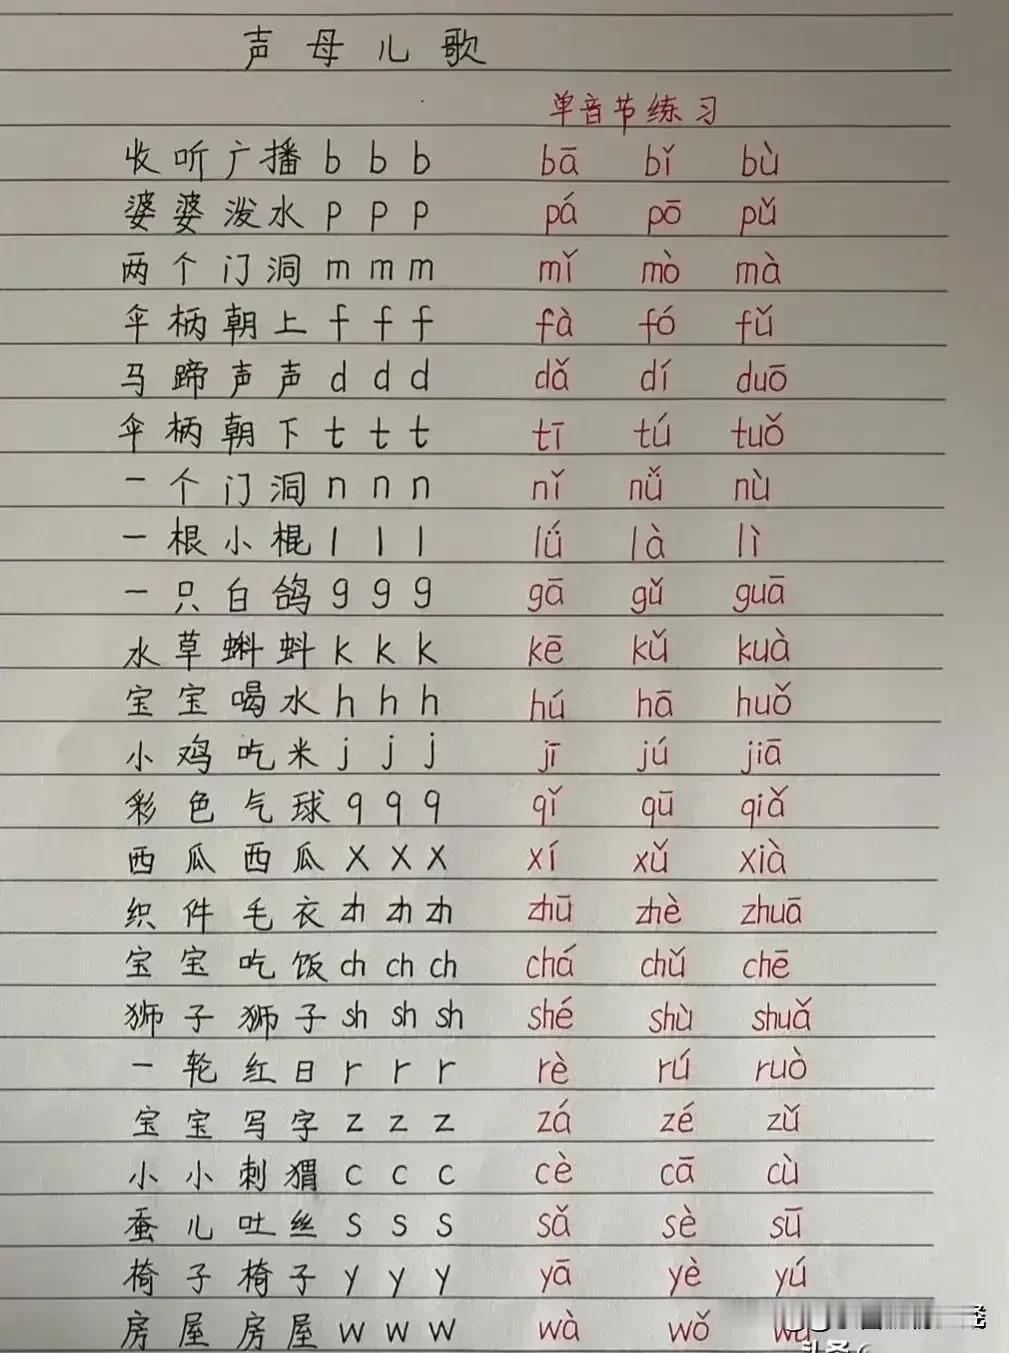 声母儿歌
单音节练习
收听广播 b b b bā bǐ bù
婆婆泼水 p p p pá pō pǔ
两个门洞 m m m mǐ mò mà
伞柄朝上 f f f fà fó fǔ
马蹄声声 d d d dǎ dí duō
伞柄朝下 t t t tī tú tuǒ
一个门洞 n n n nǐ nǚ nù
一根小棍 l l l lǘ là lì
一只白鸽 g g g gā gǔ guā
水草蝌蚪 k k k kē kǔ kuà
宝宝喝水 h h h hú hā huǒ
小鸡吃米 j j j jī jú jiā
彩色气球 q q q qǐ qū qiǎ
西瓜西瓜 x x x xí xǔ xià
织件毛衣 zh zh zh zhū zhè zhuā
宝宝吃饭 ch ch ch chá chǔ chē
狮子狮子 sh sh sh shé shù shuǎ
一轮红日 r r r rè rú ruò
宝宝写字 z z z zá zé zǔ
小小刺猬 c c c cè cā cù
蚕儿吐丝 s s s sǎ sè sū
椅子椅子 y y y yā yè yú
房屋房屋 w w w wà wǒ